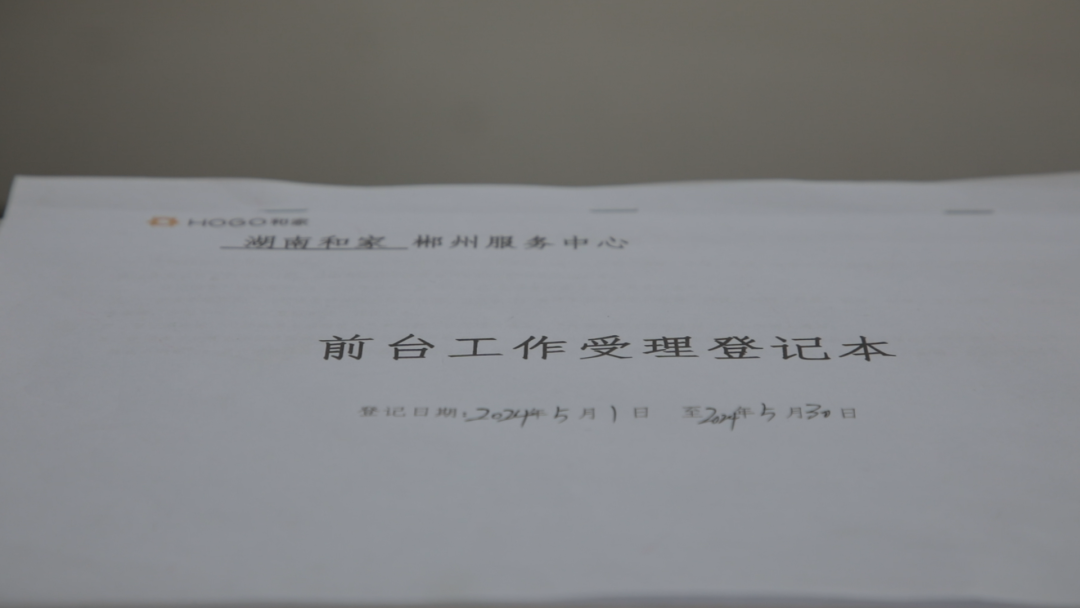 HOGO和家
湖南和家 郴州服务中心
前台工作受理登记本
登记日期:2024年5月1日 至2024年5月30日